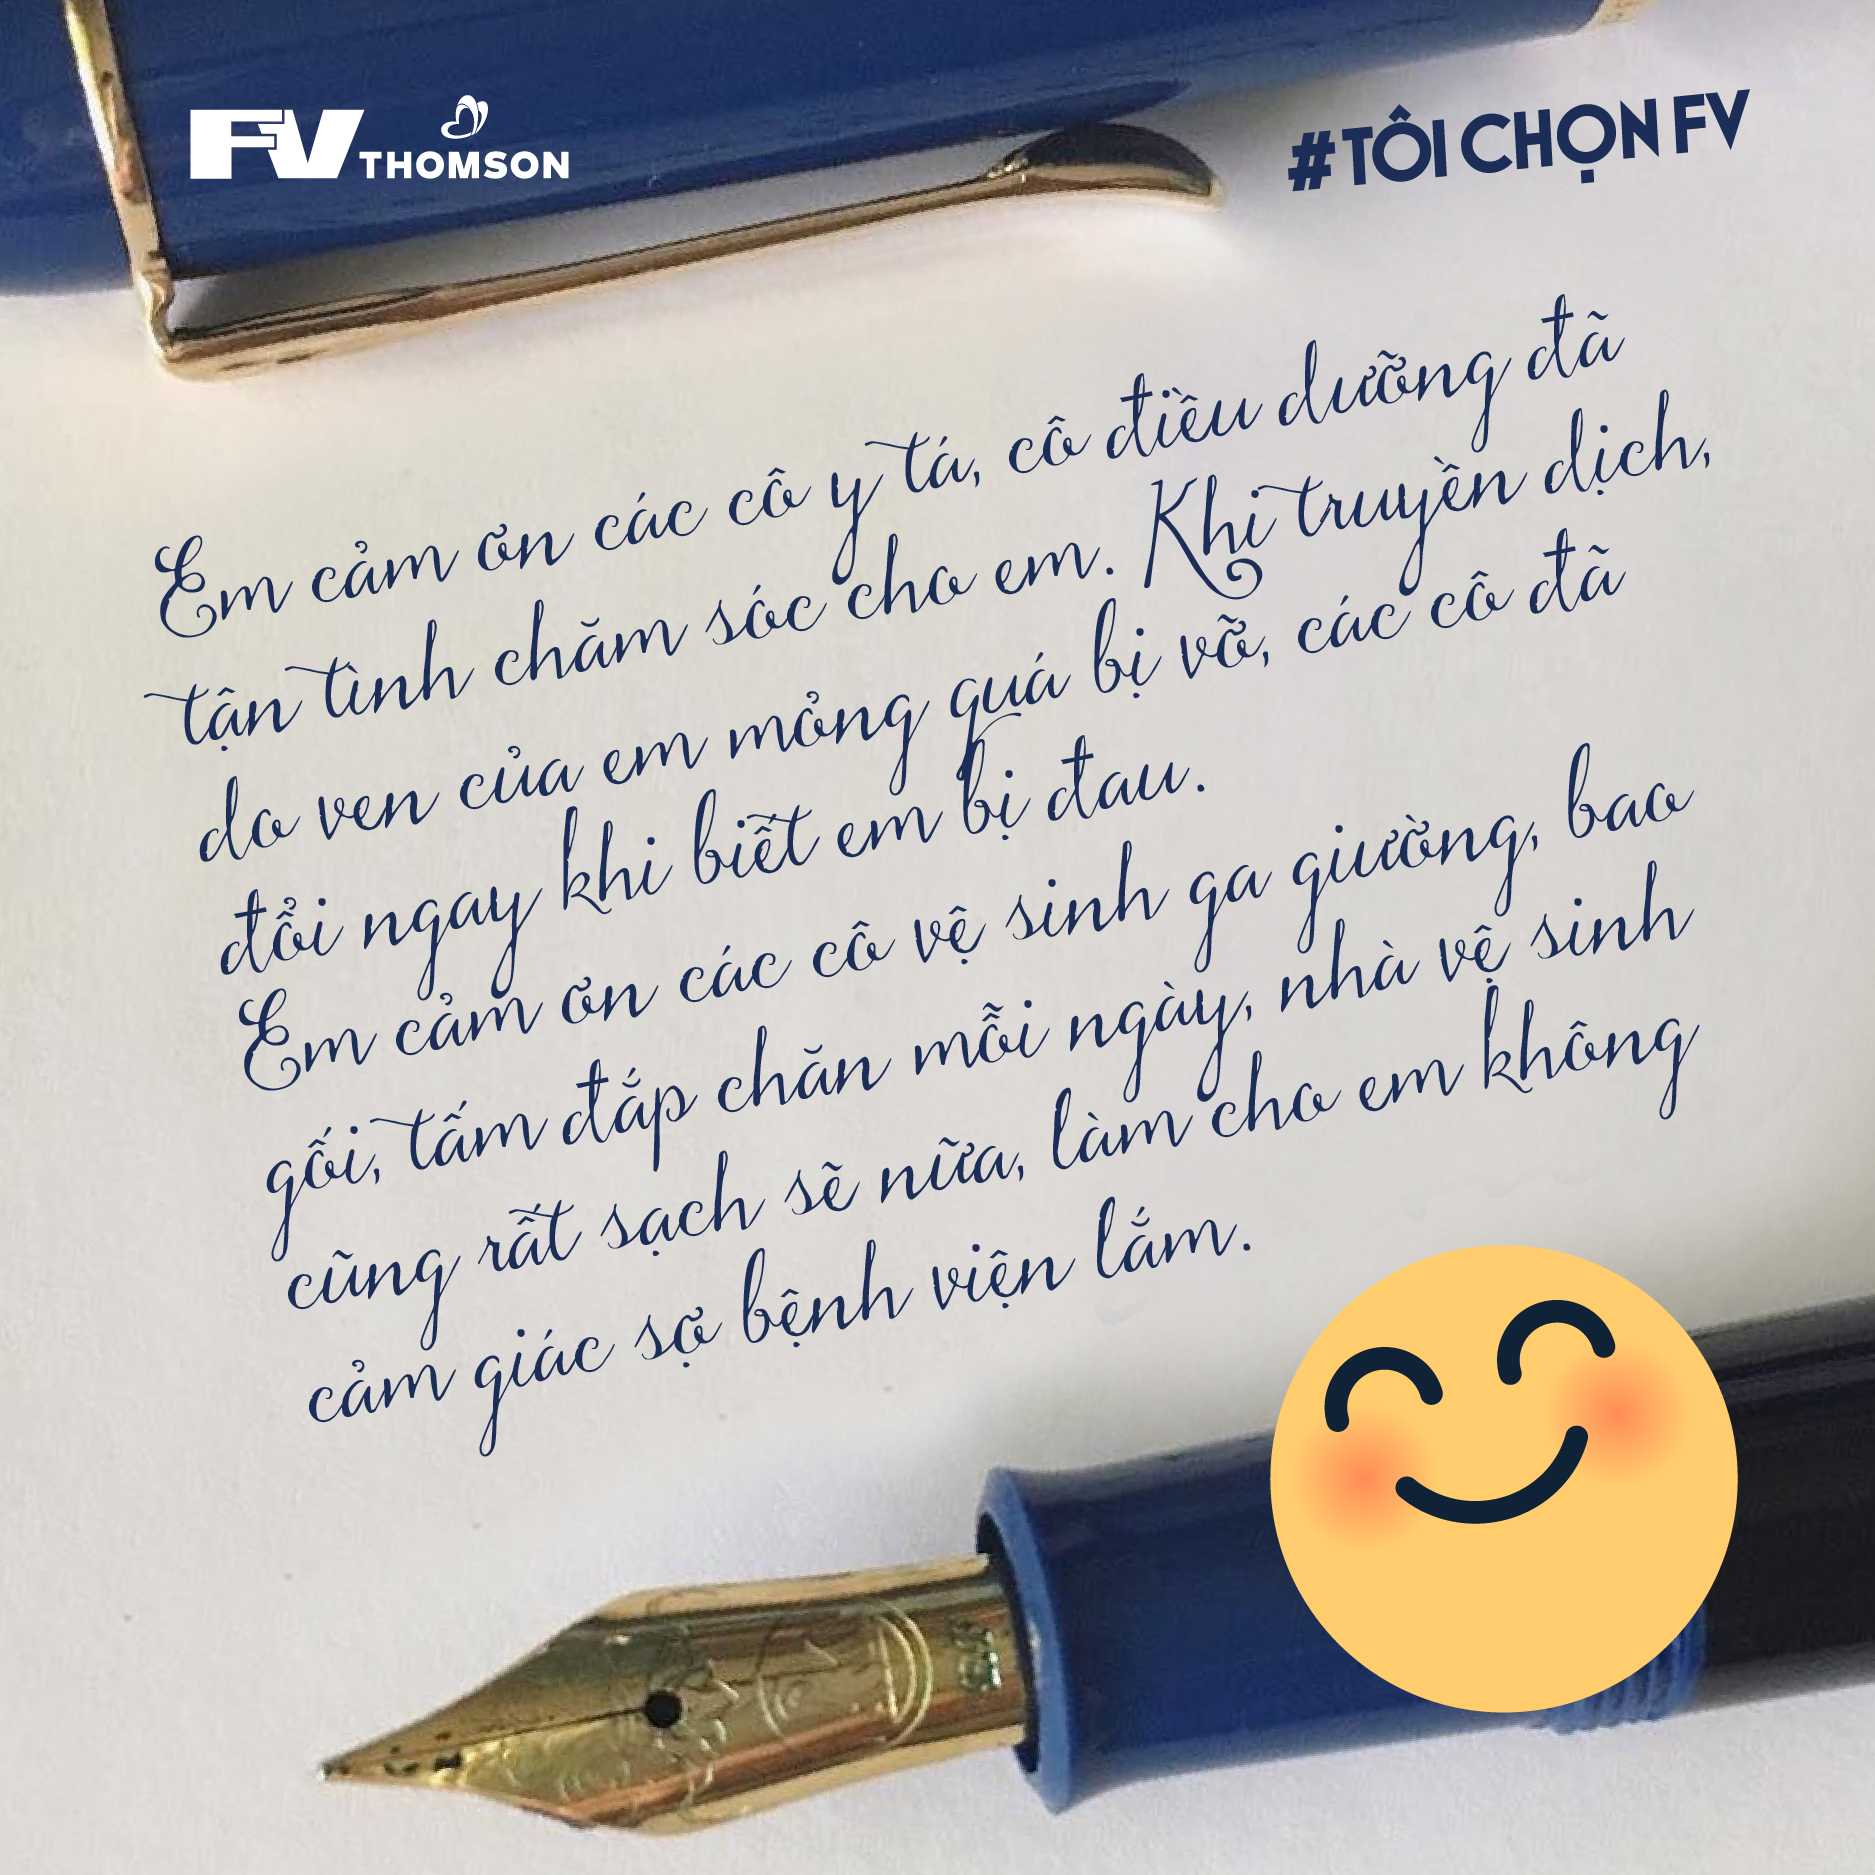 FV THOMSON
#TÔI CHỌN FV
Em cảm ơn các cô y tá, cô điều dưỡng đã
tận tình chăm sóc cho em. Khi truyền dịch,
do ven của em mỏng quá bị vỡ, các cô đã
đổi ngay khi biết em bị đau.
Em cảm ơn các cô vệ sinh ga giường, bao
gối, tấm đắp chăn mỗi ngày, nhà vệ sinh
cũng rất sạch sẽ nữa, làm cho em không
cảm giác sợ bệnh viện lắm.